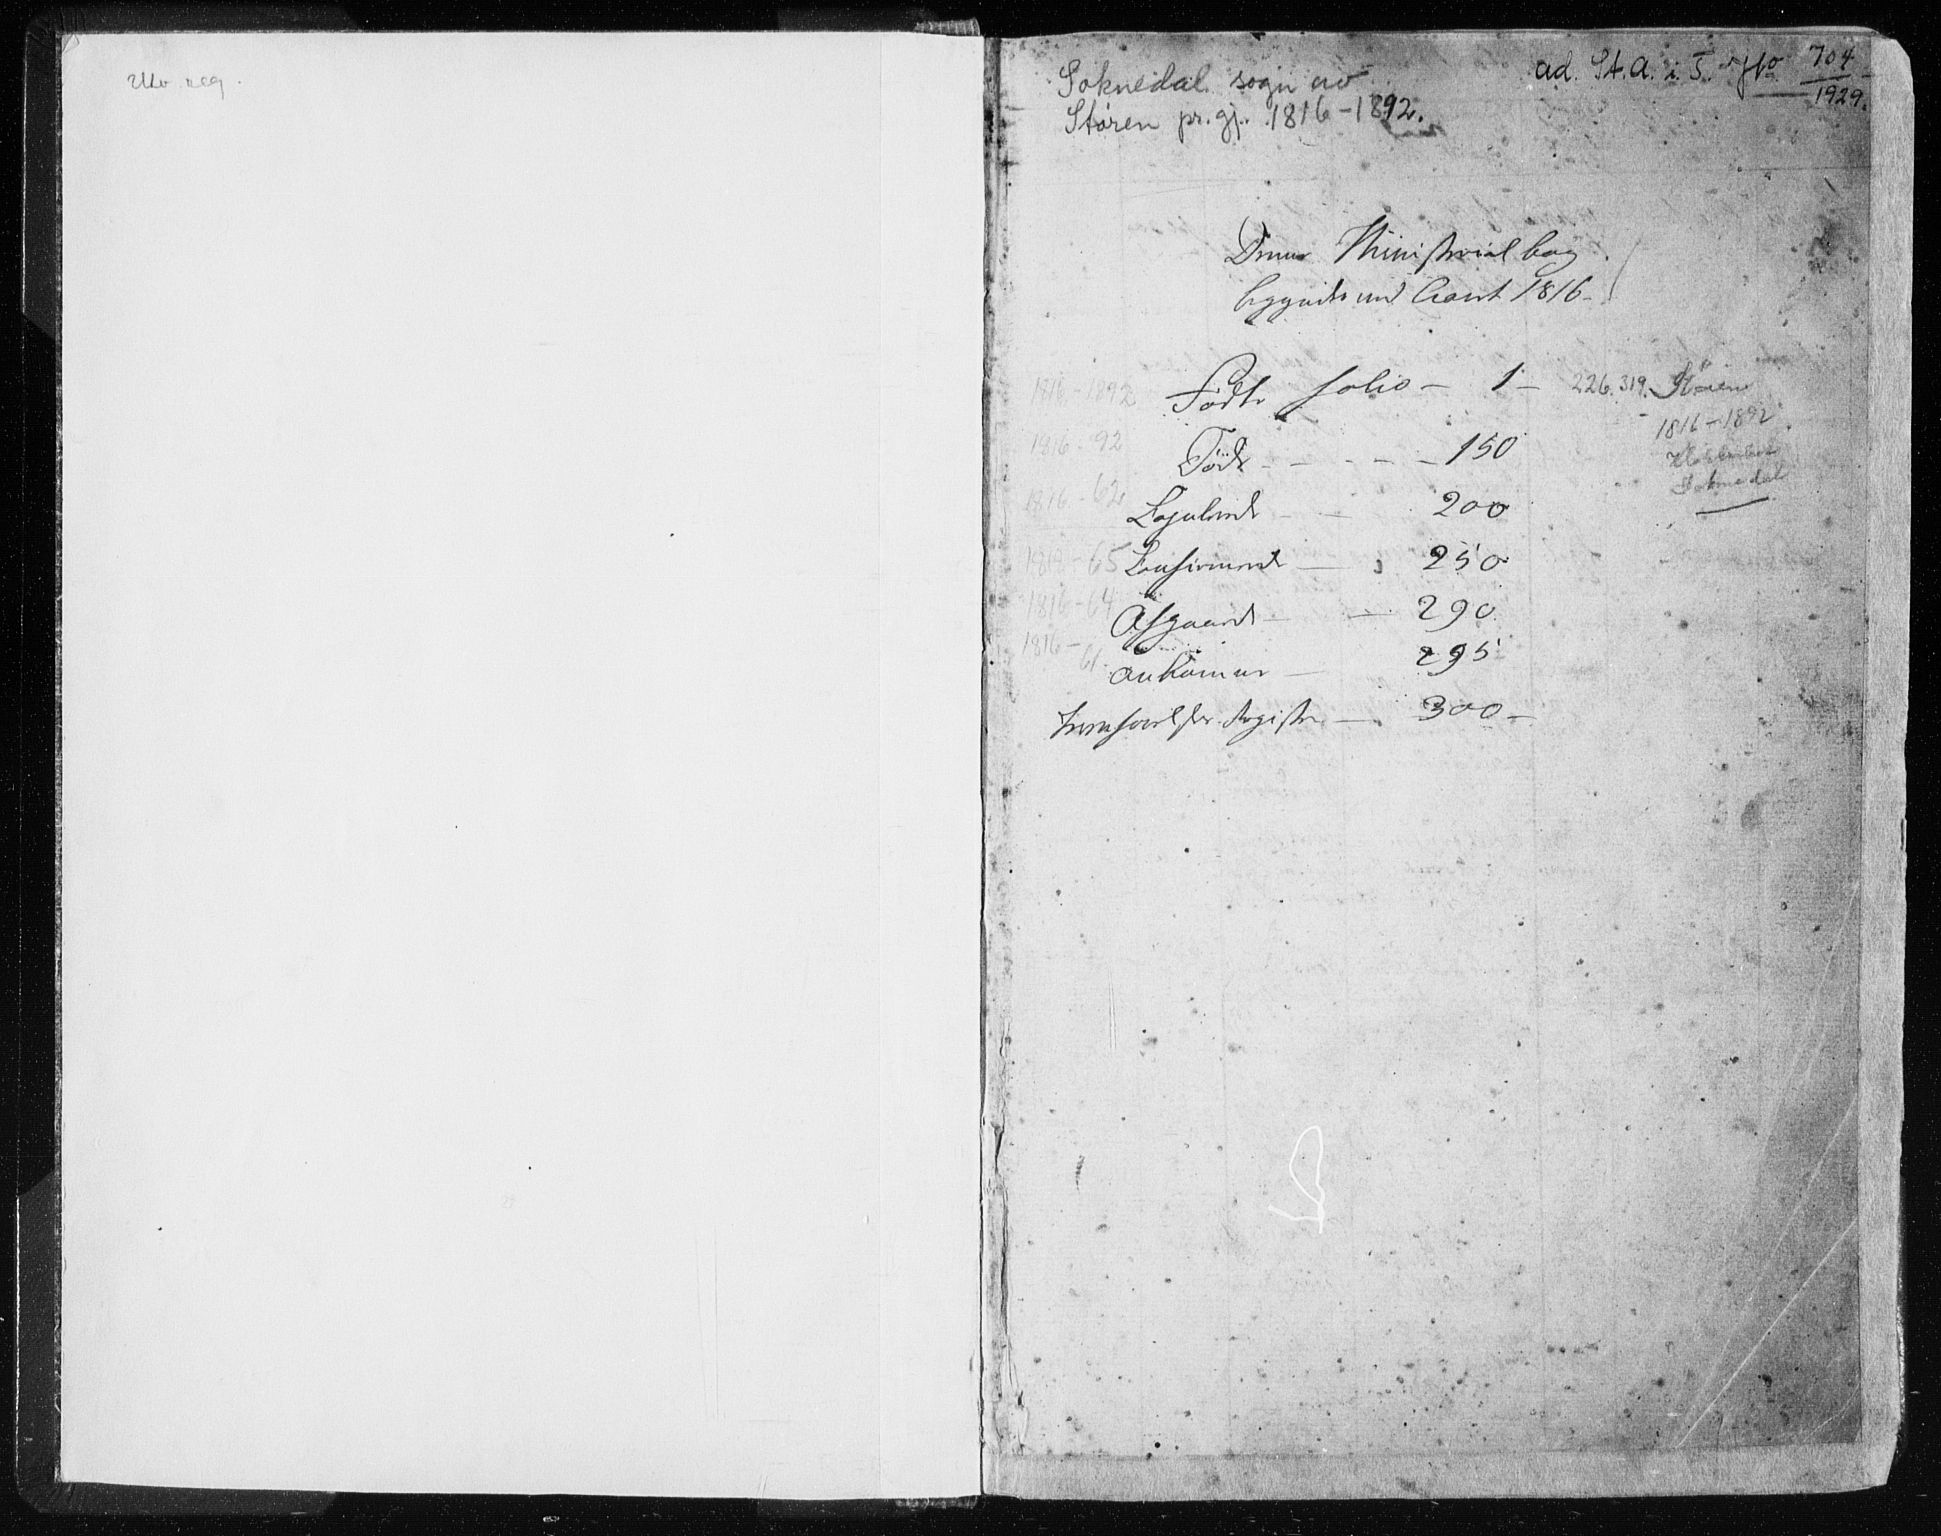 Utv. neg.
Soknedal sogn av
Støren pr.gj. 1816-1892.
ad. St. A. i T. 704
1929.
Denne Ministerial bog
begyndes med Aaret 1816-
1816-1892 Födte folio - 1 - 226. 319. Støren
1816-1892
1816-92 Döde - - - - - 150
Soknedal
1816-62 Copulerede - - 200
1819-65 Confirmerede - 250
1816-64 Afgaaende - - 290
1816-61. Ankomne - 295
Jevnførelses-Register - 300 -